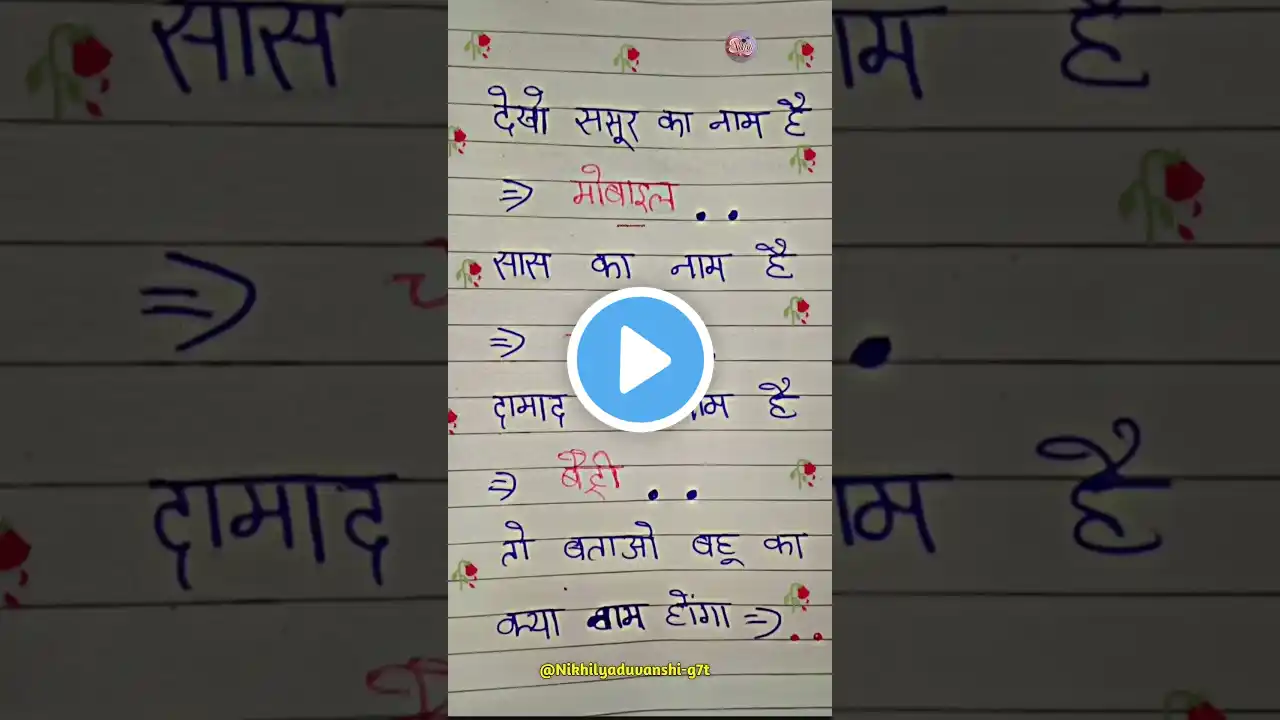 देखो ससूर का नाम है
⇒ मोबाइल . .
सास का नाम है
⇒
दामाद नाम है
⇒ बैट्री . .
तो बताओ बहू का
क्या नाम होंगा ⇒ . .
@Nikhilyaduvanshi-g7t